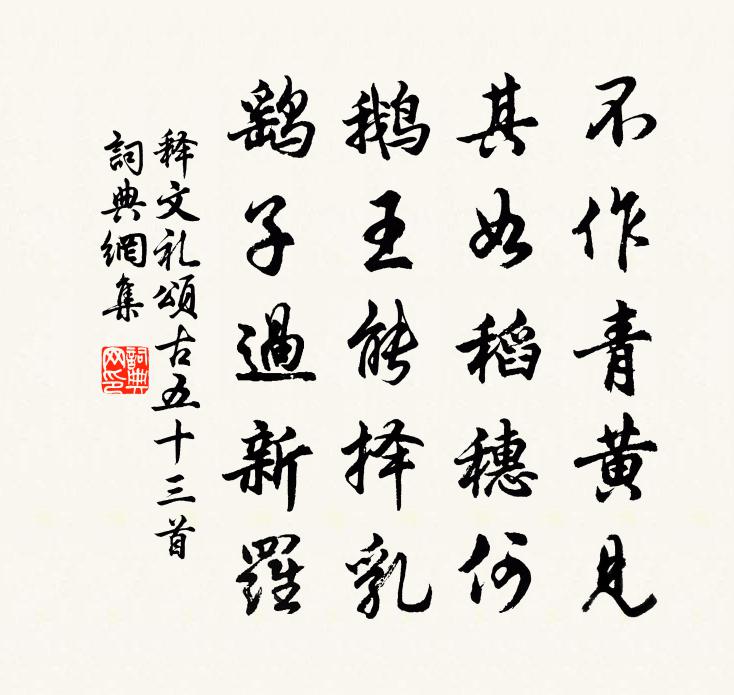 不作青黄見
其如稻穗何
鹅王能择乳
鹞子過新羅
释文礼頌古五十三首
詞典網集
詞典网印